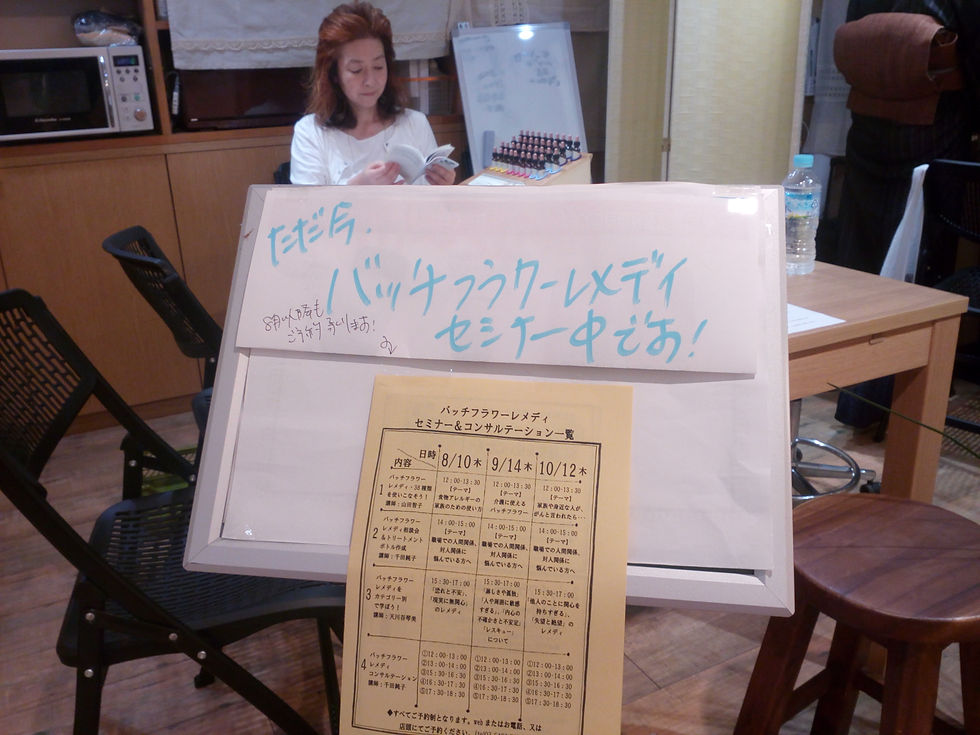 ただ今、
バッチフラワーレメディ
セミナー中でお!
8月以降も
ご予約承ります!
バッチフラワーレメディ
セミナー&コンサルテーション一覧
日時
内容
8/10木
9/14木
10/12木
1
バッチフラワー
レメディ・38種類
を使いこなそう!
講師:山田智子
12:00-13:30
【テーマ】
食物アレルギーの
家族のための使い方
12:00-13:30
【テーマ】
介護に使える
バッチフラワー
12:00-13:30
【テーマ】
家族や身近な人が、
がんと言われたら・・・
2
バッチフラワー
レメディ相談会
&トリートメント
ボトル作成
講師:千田純子
14:00-15:00
【テーマ】
職場での人間関係、
対人関係に
悩んでいる方へ
14:00-15:00
【テーマ】
職場での人間関係、
対人関係に
悩んでいる方へ
14:00-15:00
【テーマ】
職場での人間関係、
対人関係に
悩んでいる方へ
3
バッチフラワー
レメディを
カテゴリー別
で学ぼう!
講師:天川百琴美
15:30-17:00
「恐れと不安」、
「現実に無関心」
のレメディ
15:30-17:00
「淋しさや孤独」
「人や周囲に敏感
すぎる」、「内心の
不確かさと不安定」
「レスキュー」
について
15:30-17:00
「他人のことに関心を
持ちすぎる」、
「失望と絶望」の
レメディ
4
バッチフラワー
レメディ
コンサルテーション
講師:千田純子
①12:00-13:00
②13:00-14:00
③15:30-16:30
④16:30-17:30
⑤17:30-18:30
①12:00-13:00
②13:00-14:00
③15:30-16:30
④16:30-17:30
⑤17:30-18:30
①12:00-13:00
②13:00-14:00
③15:30-16:30
④16:30-17:30
⑤17:30-18:30
◆すべてご予約制となります。web またはお電話、又は
店頭にてご予約ください。